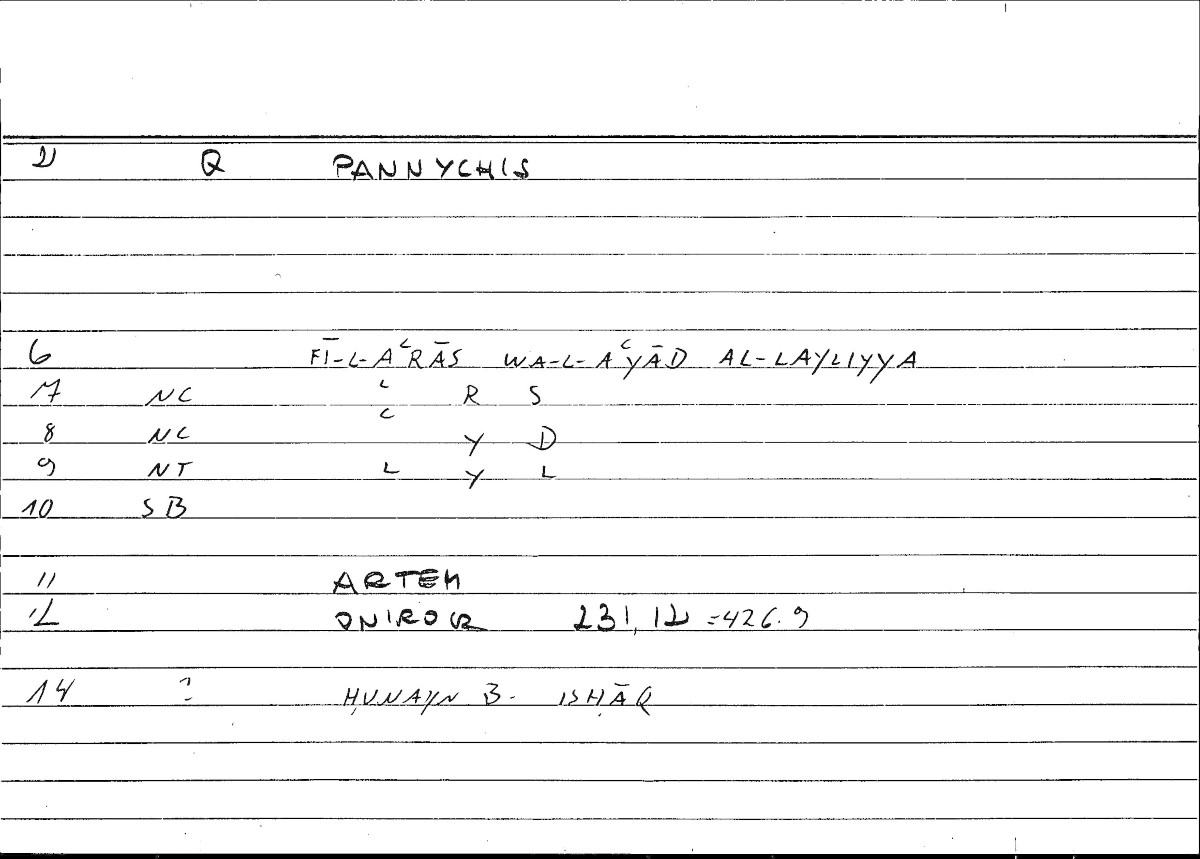 2 Q PANNYCHIS
6 FĪ-L-AʿRĀS WA-L-AʿYĀD AL-LAYLIYYA
7 NC ʿ R S
8 NC ʿ Y D
9 NT L Y L
10 SB
11 ARTEM
12 ONIROCR 231,12 =426.9
14 ? ḤUNAYN B. ISḤĀQ